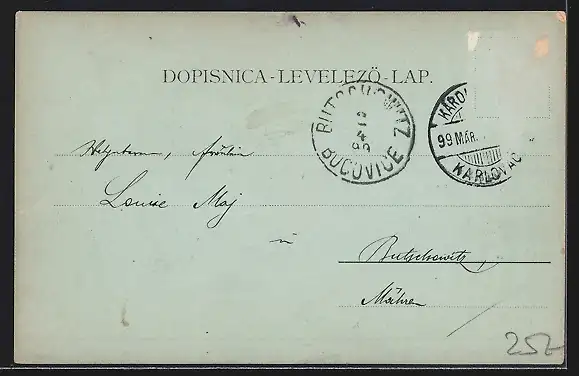 DOPISNICA-LEVELEZÖ-LAP.
BUTSCHOWITZ
BUČOVICE
KÁRO
99 MÁR.
KARLOVAC
Fräulein
Louise Maj
in
Butschowitz,
Mähren
25Z